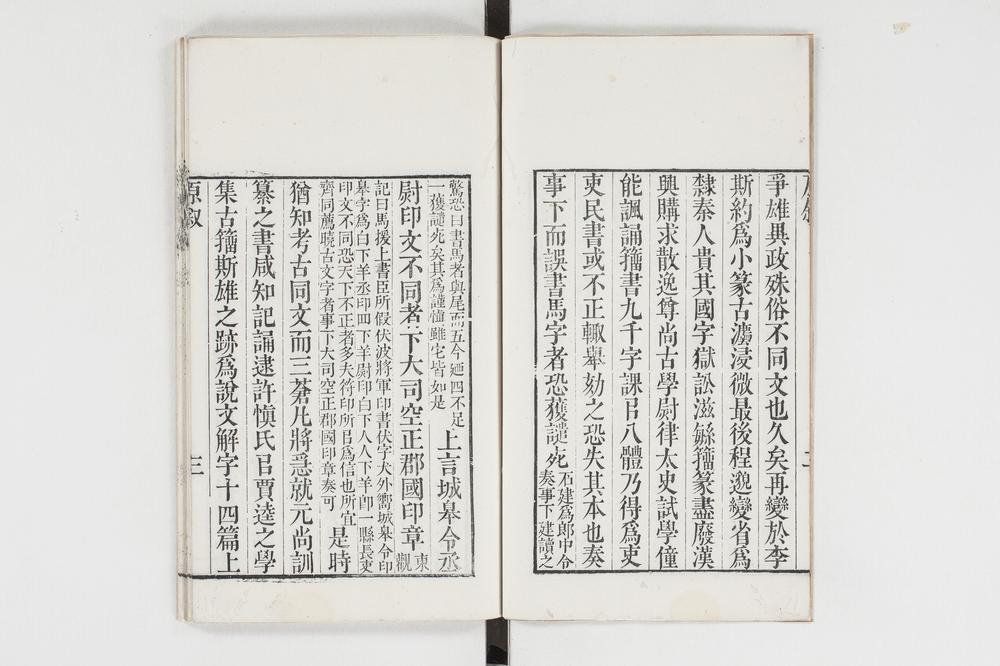 爭雄異政殊俗不同文也久矣再變於李
斯約爲小篆古灋浸微最後程邈變省爲
隸秦人貴其國字獄訟滋繇籀篆盡廢漢
興購求散逸尊尚古學尉律太史試學僮
能諷誦籀書九千字課㠯八體乃得爲吏
吏民書或不正輙舉劾之恐失其本也奏
事下而誤書馬字者恐獲譴死
石建爲郎中令
奏事下建讀之
驚恐曰書馬者與尾而五今廼四不足
一獲譴死矣其爲謹愼雖宅皆如是
上言城皋令丞
尉印文不同者下大司空正郡國印章
東
觀
記曰馬援上書臣所假伏波將軍印書伏字犬外嚮城皋令印
皋字爲白下羊丞印四下羊尉印白下人人下羊卽一縣長吏
印文不同恐天下不正者多夫符印所㠯爲信也所宜
齊同薦曉古文字者事下大司空正郡國印章奏可
是時
猶知考古同文而三蒼凡將急就元尚訓
纂之書咸知記誦逮許愼氏㠯賈逵之學
集古籀斯雄之跡爲說文解字十四篇上
原敘
三